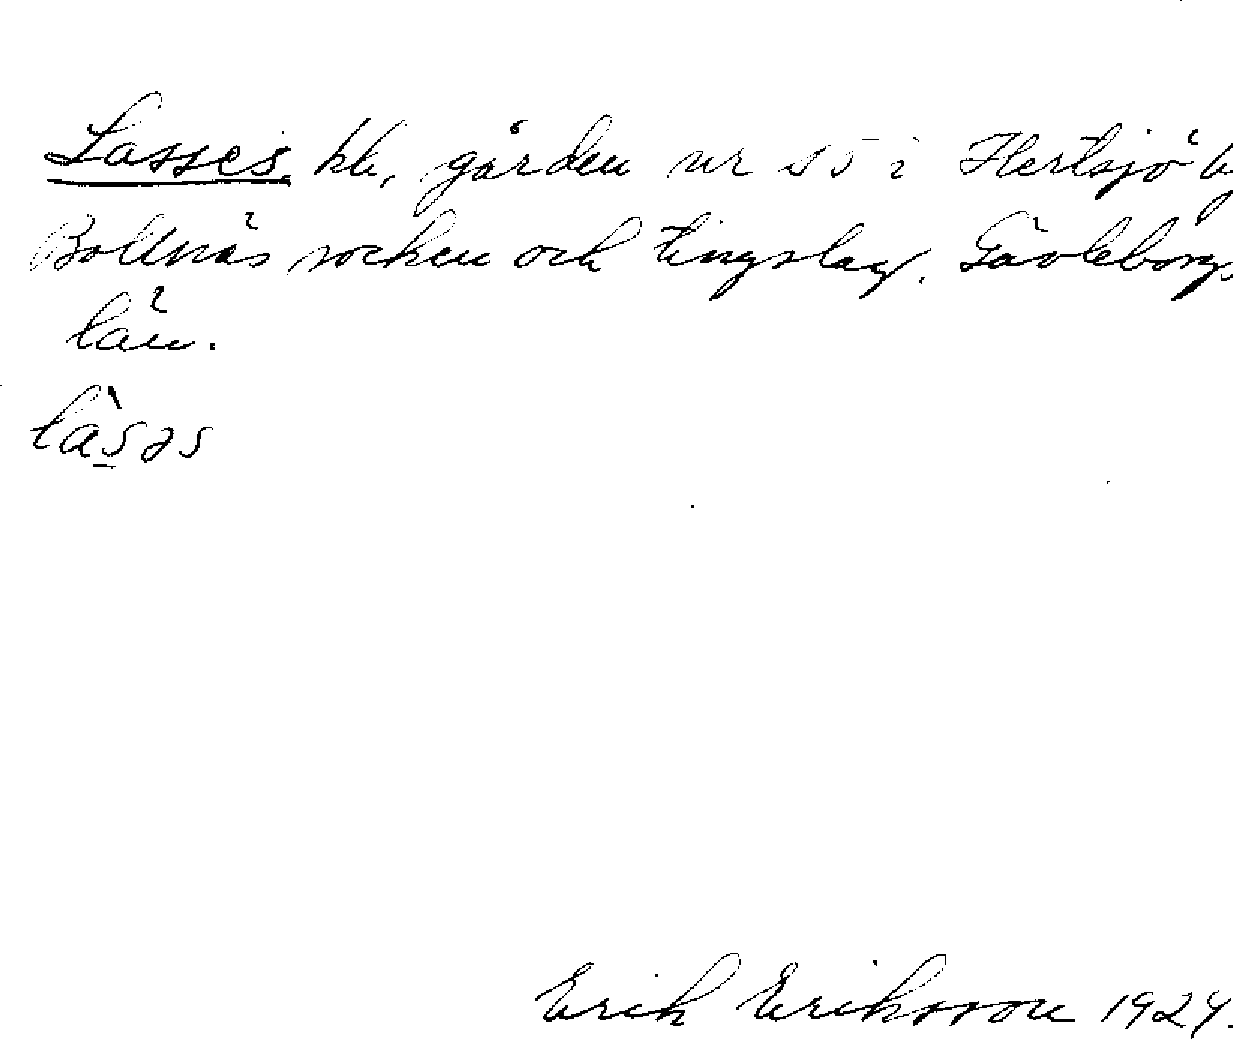 Lasses, bb, gården nr 15 i Hertsjö by
Bollnäs socken och tingslag. Gävleborgs
län.
làs̲əs
Erik Eriksson 1924.